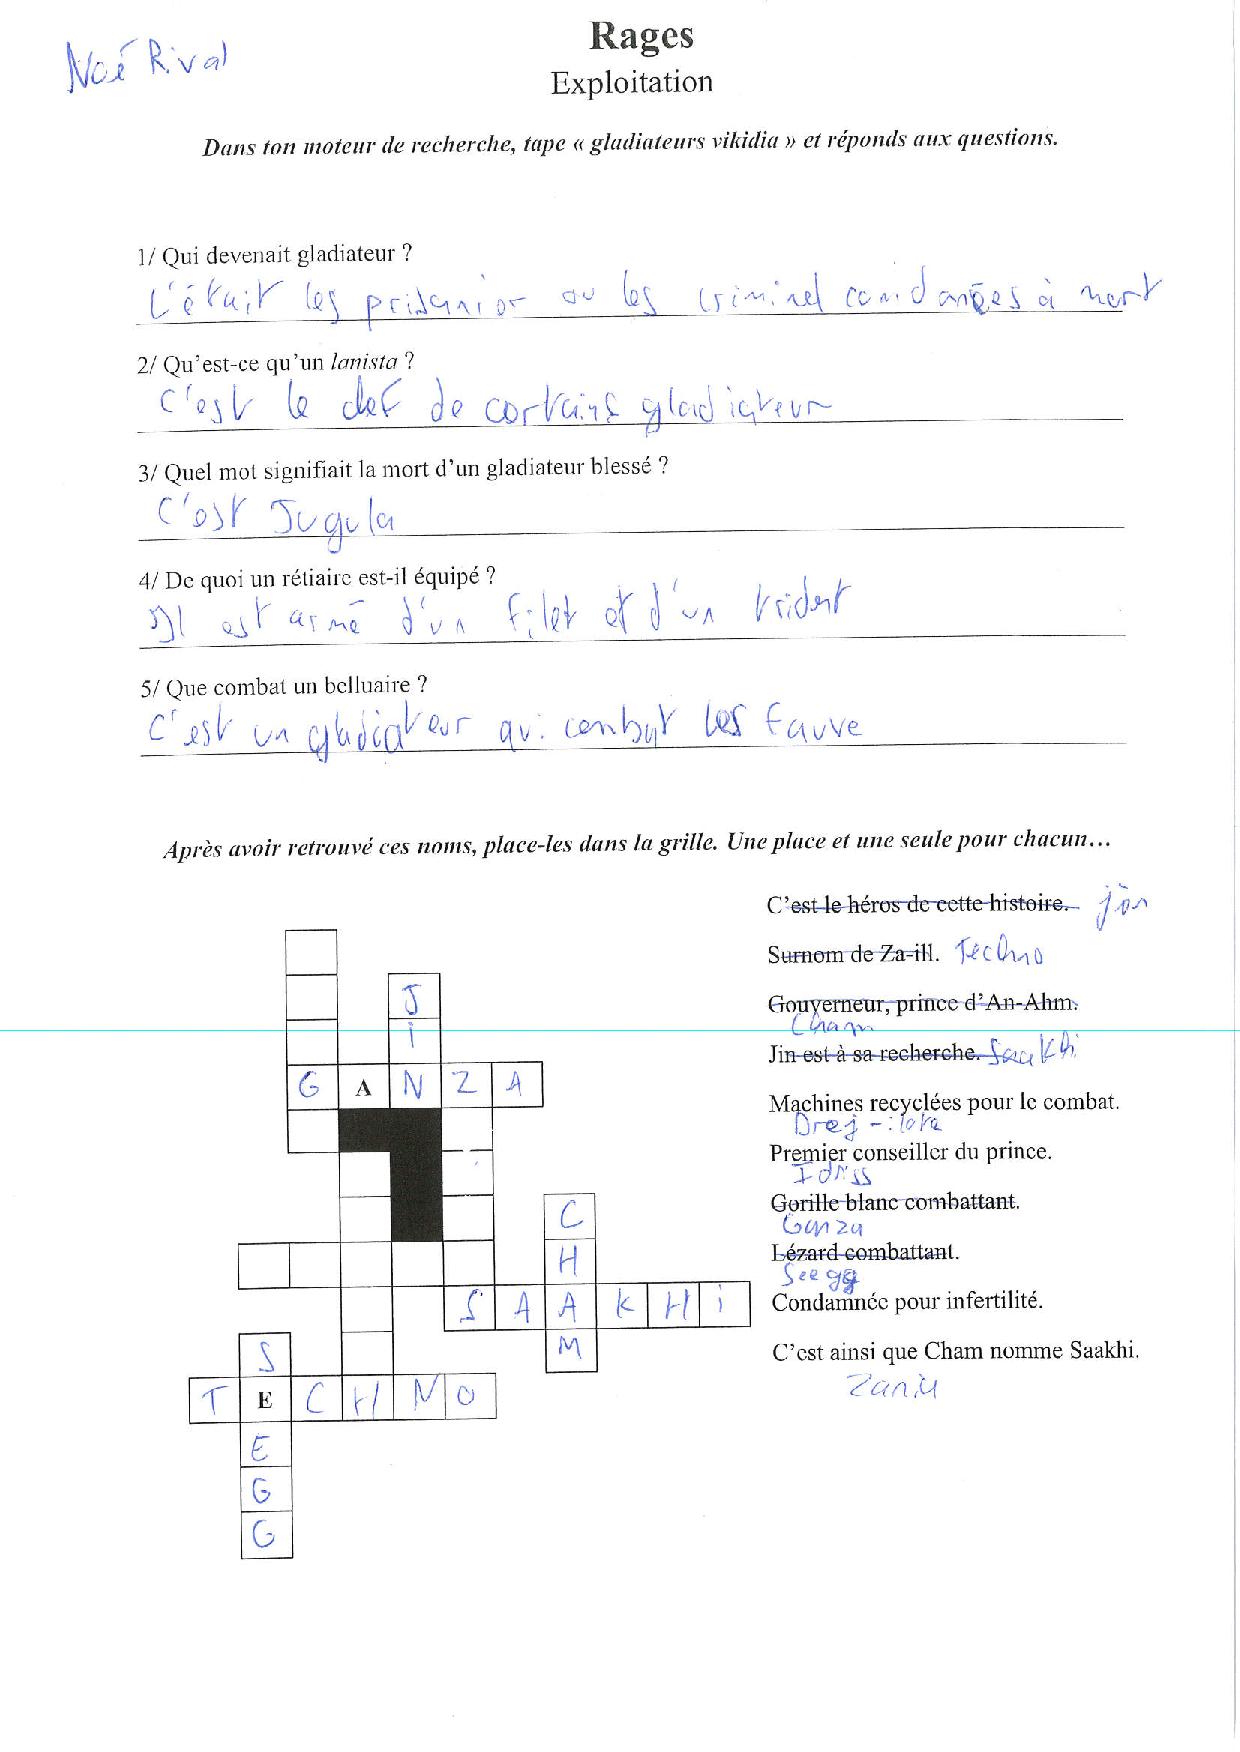 Noé Rival
Rages
Exploitation
Dans ton moteur de recherche, tape « gladiateurs vikidia » et réponds aux questions.
1/ Qui devenait gladiateur ?
C'était les prisanior ou les criminel condanées à mort
2/ Qu'est-ce qu'un lanista ?
C'est le chef de cortains gladiateur
3/ Quel mot signifiait la mort d'un gladiateur blessé ?
C'est Jugula
4/ De quoi un rétiaire est-il équipé ?
Il est armé d'un filet et d'un trident
5/ Que combat un belluaire ?
C'est un gladiateur qui combat les fauve
Après avoir retrouvé ces noms, place-les dans la grille. Une place et une seule pour chacun…
C'est le héros de cette histoire. jin
Surnom de Za-ill. Techno
Gouverneur, prince d'An-Ahm.
Cham
Jin est à sa recherche. Saakhi
Machines recyclées pour le combat.
Premier conseiller du prince.
Idriss
Gorille blanc combattant.
Ganza
Lézard combattant.
Seegg
Condamnée pour infertilité.
C'est ainsi que Cham nomme Saakhi.
J
i
G A N Z A
C
H
S A A K H i
M
S
T E C H N O
E
G
G